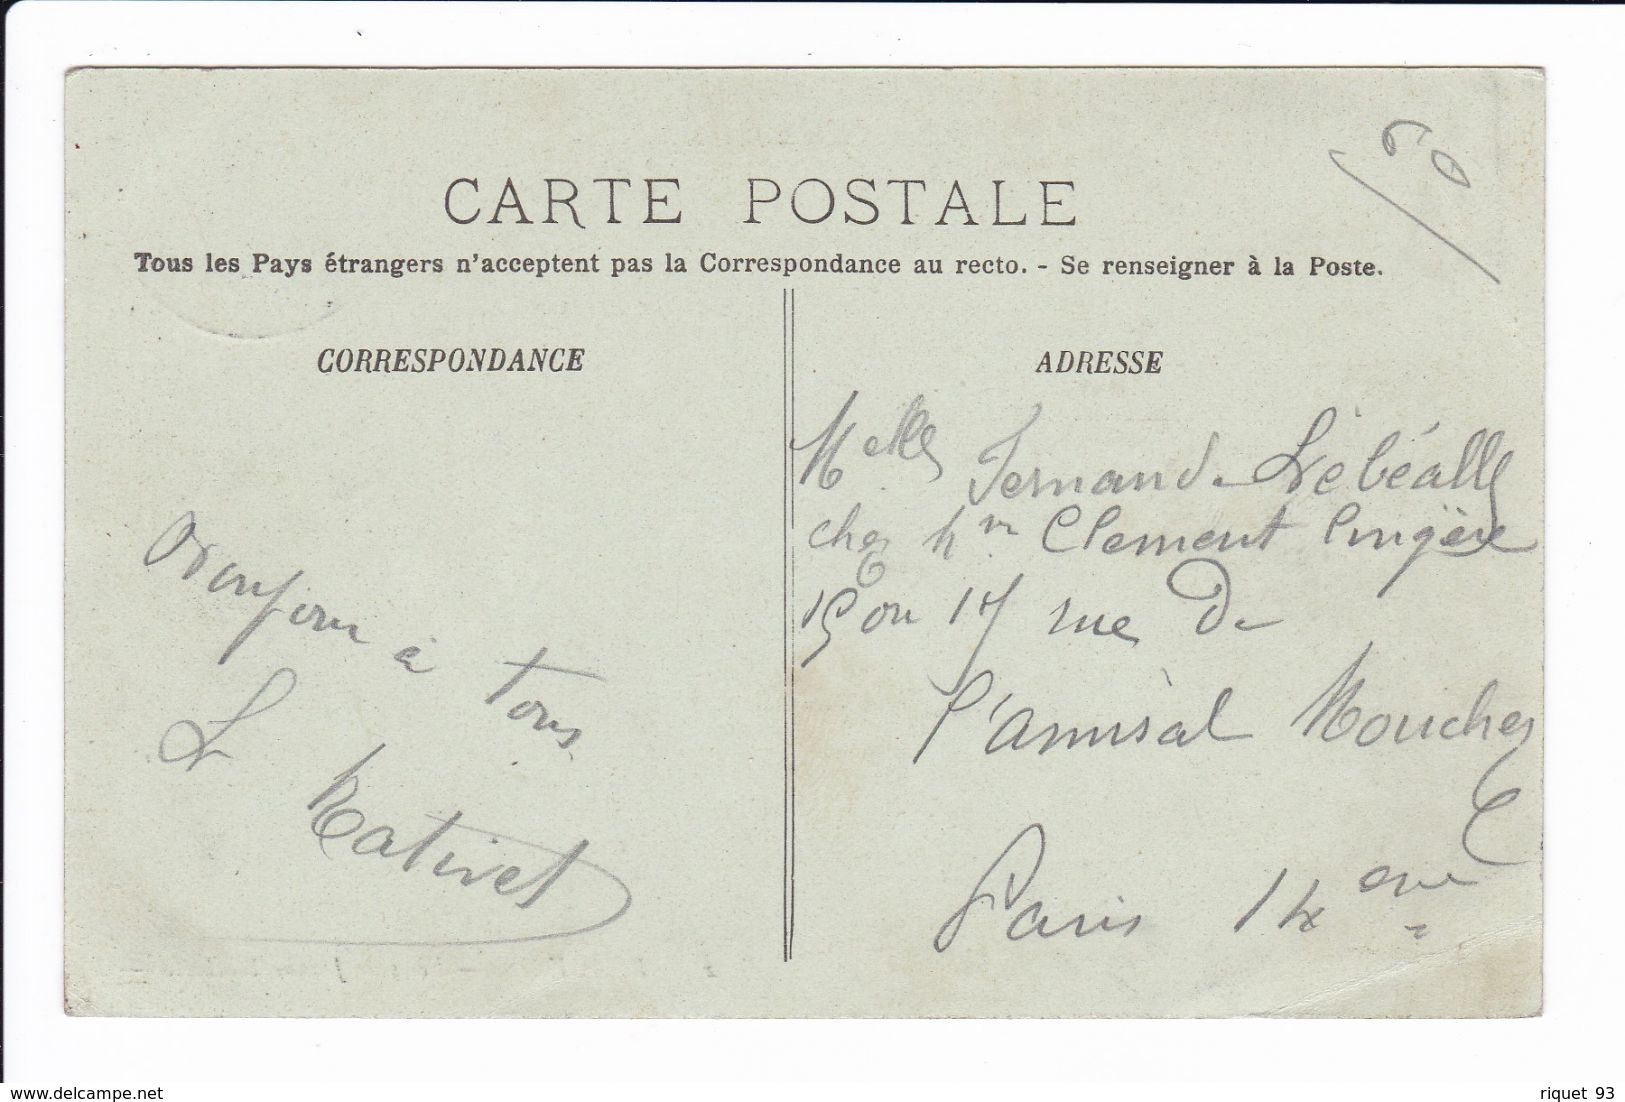 60
CARTE POSTALE
Tous les Pays étrangers n'acceptent pas la Correspondance au recto. - Se renseigner à la Poste.
CORRESPONDANCE
Bonjour à tous
L Mativet
ADRESSE
Melle Fernand Lebéalle
chez Mr Clement
15 ou 17 rue De
l'amiral Mouchez
Paris 14 eme
delcampe.net
riquet 93